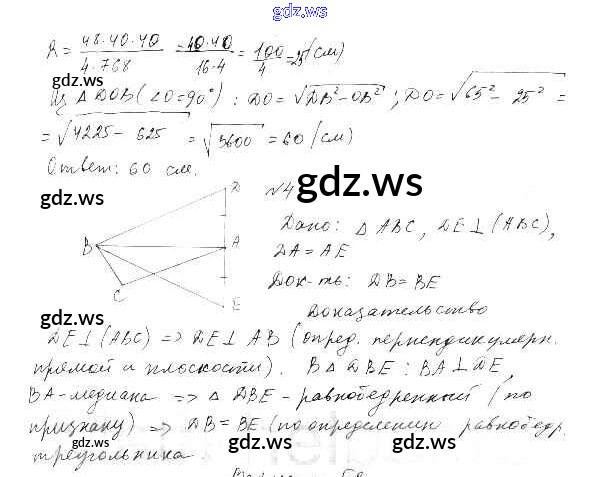 gdz.ws
R = 48·40·40 / 4·768 = 40·40 / 16·4 = 100 / 4 = 25 (см)
gdz.ws
Из △ DOB (∠O=90°) : DO = √DB² − OB² ; DO = √65² − 25² =
= √4225 − 625 = √3600 = 60 (см)
Ответ: 60 см.
gdz.ws
D
N4
gdz.ws
Дано: △ ABC, DE ⊥ (ABC),
B
A
DA = AE
Док-ть: DB = BE
C
E
Доказательство
gdz.ws
DE ⊥ (ABC) => DE ⊥ AB (опред. перпендикулярн.
прямой и плоскости). В △ DBE : BA ⊥ DE,
BA - медиана => △ DBE - равнобедренный (по
признаку) => DB = BE (по определению равнобедр.
gdz.ws
gdz.ws
треугольника